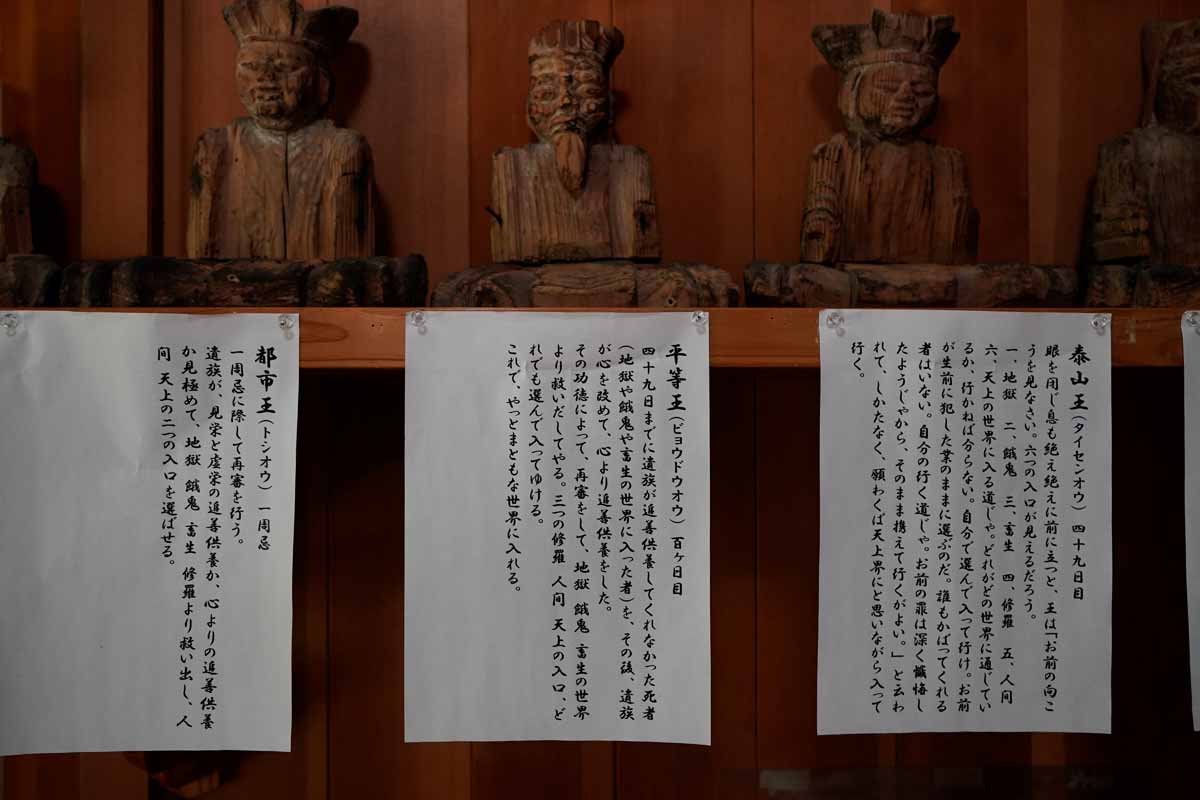 泰山王(タイセンオウ) 四十九日目
眼を閉じ息も絶え絶えに前に立つと、王は「お前の向こ
うを見なさい。六つの入口が見えるだろう。
一、地獄 二、餓鬼 三、畜生 四、修羅 五、人間
六、天上の世界に入る道じゃ。どれがどの世界に通じてい
るか、行かねば分らない。自分で選んで入って行け。お前
が生前に犯した業のままに選ぶのだ。誰もかばってくれる
者はいない。自分の行く道じゃ。お前の罪は深く懺悔し
たようじゃから、そのまま携えて行くがよい。」と云わ
れて、しかたなく、願わくば天上界にと思いながら入って
行く。
平等王(ビョウドウオウ) 百ヶ日目
四十九日までに遺族が追善供養してくれなかった死者
(地獄や餓鬼や畜生の世界に入った者)を、その後、遺族
が心を改めて、心より追善供養をした。
その功徳によって、再審をして、地獄 餓鬼 畜生の世界
より救いだしてやる。三つの修羅 人間 天上の入口、ど
れでも選んで入ってゆける。
これで、やっとまともな世界に入れる。
都市王(トシオウ) 一周忌
一周忌に際して再審を行う。
遺族が、見栄と虚栄の追善供養か、心よりの追善供養
か見極めて、地獄 餓鬼 畜生 修羅より救い出し、人
間 天上の二つの入口を選ばせる。